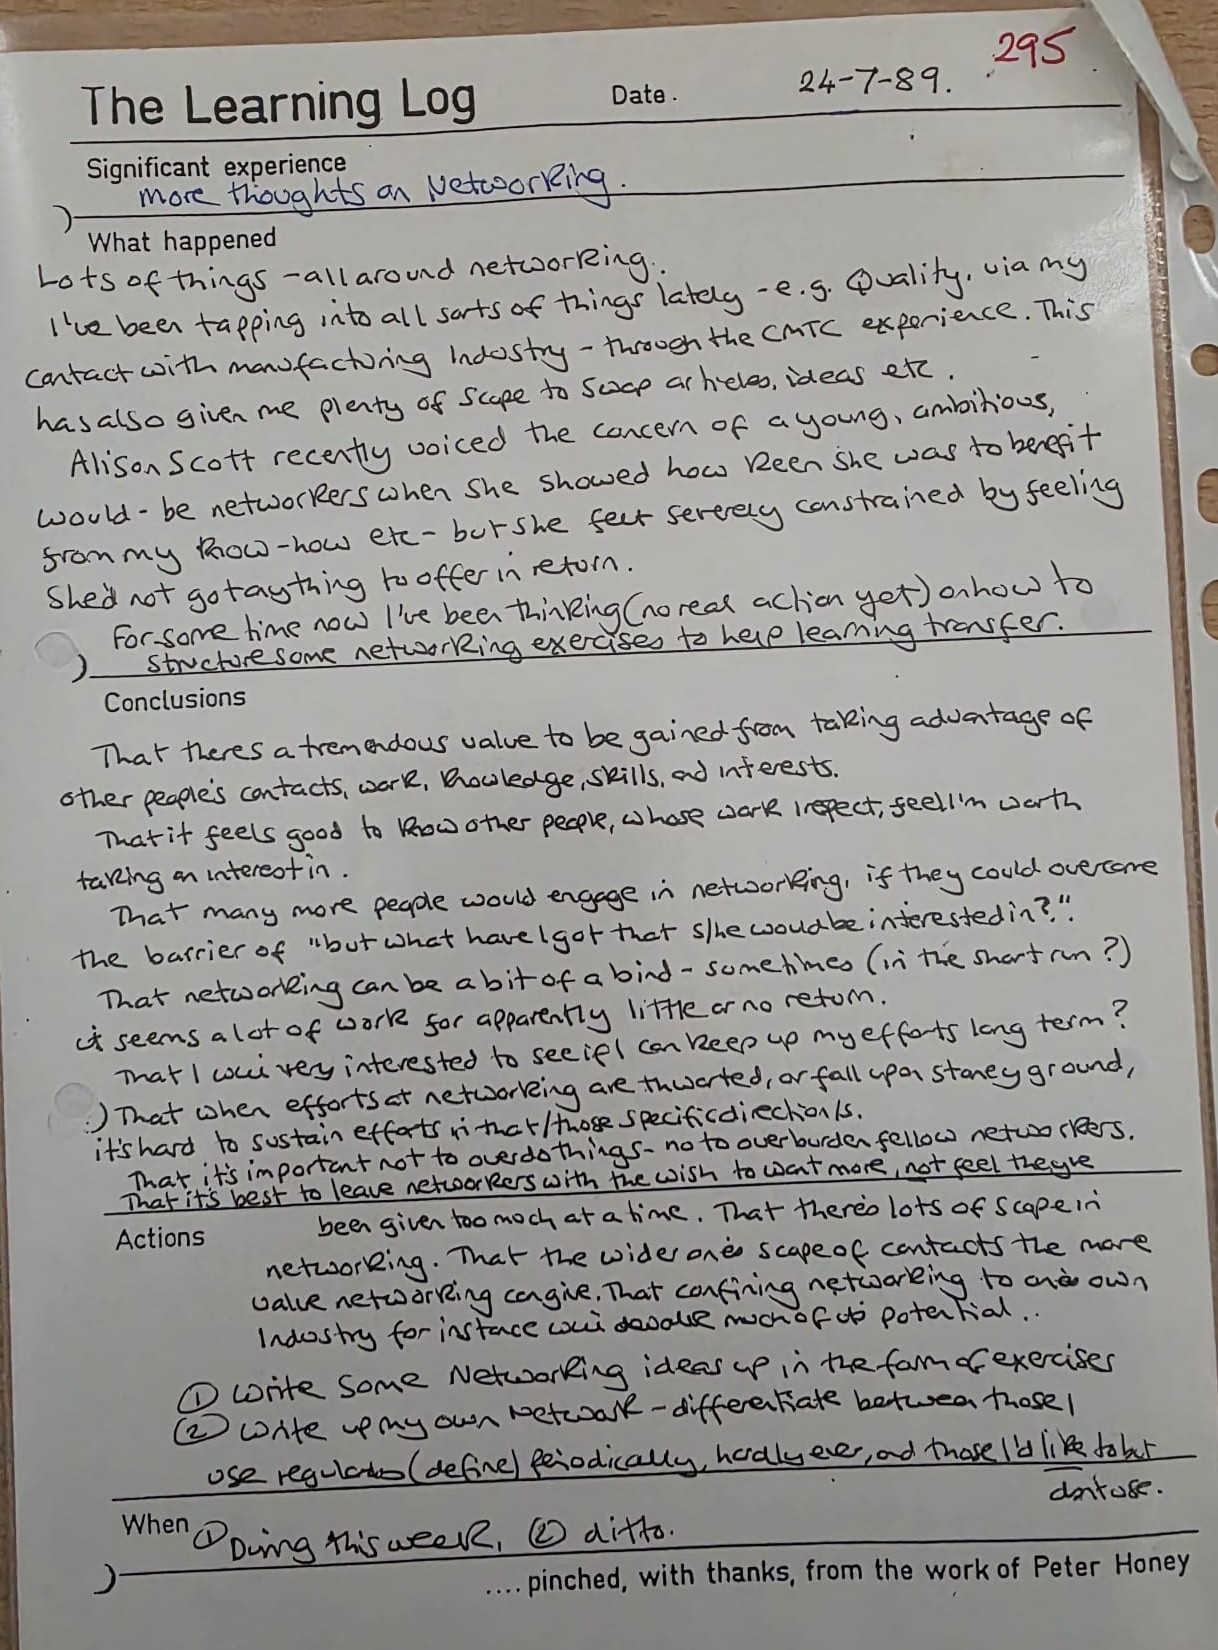 295
The Learning Log Date. 24-7-89.
Significant experience
More thoughts on Networking.
What happened
Lots of things - all around networking.
I've been tapping into all sorts of things lately - e.g. Quality, via my
contact with manufacturing Industry - through the CMTC experience. This
has also given me plenty of scope to swap articles, ideas etc.
Alison Scott recently voiced the concern of a young, ambitious,
would-be networkers when she showed how keen she was to benefit
from my know-how etc - but she felt severely constrained by feeling
She'd not got anything to offer in return.
For some time now I've been thinking (no real action yet) on how to
structure some networking exercises to help learning transfer.
Conclusions
That theres a tremendous value to be gained from taking advantage of
other people's contacts, work, knowledge, skills, and interests.
That it feels good to know other people, whose work I respect, feel I'm worth
taking an interest in.
That many more people would engage in networking, if they could overcome
the barrier of "but what have I got that s/he would be interested in?".
That networking can be a bit of a bind - sometimes (in the short run?)
it seems a lot of work for apparently little or no return.
That I will very interested to see if I can keep up my efforts long term?
That when efforts at networking are thwarted, or fall upon stoney ground,
it's hard to sustain efforts in that/those specific direction/s.
That it's important not to overdo things - no to overburden fellow networkers.
That it's best to leave networkers with the wish to want more, not feel they've
been given too much at a time. That there's lots of scope in
Actions
networking. That the wider one's scope of contacts the more
value networking can give. That confining networking to one's own
Industry for instance will much of its potential..
① Write some Networking ideas up in the form of exercises
② Write up my own Network - differentiate between those I
use regularly (define) periodically, hardly ever, and those I'd like to but
dont use.
When ① During this week, ② ditto.
.... pinched, with thanks, from the work of Peter Honey